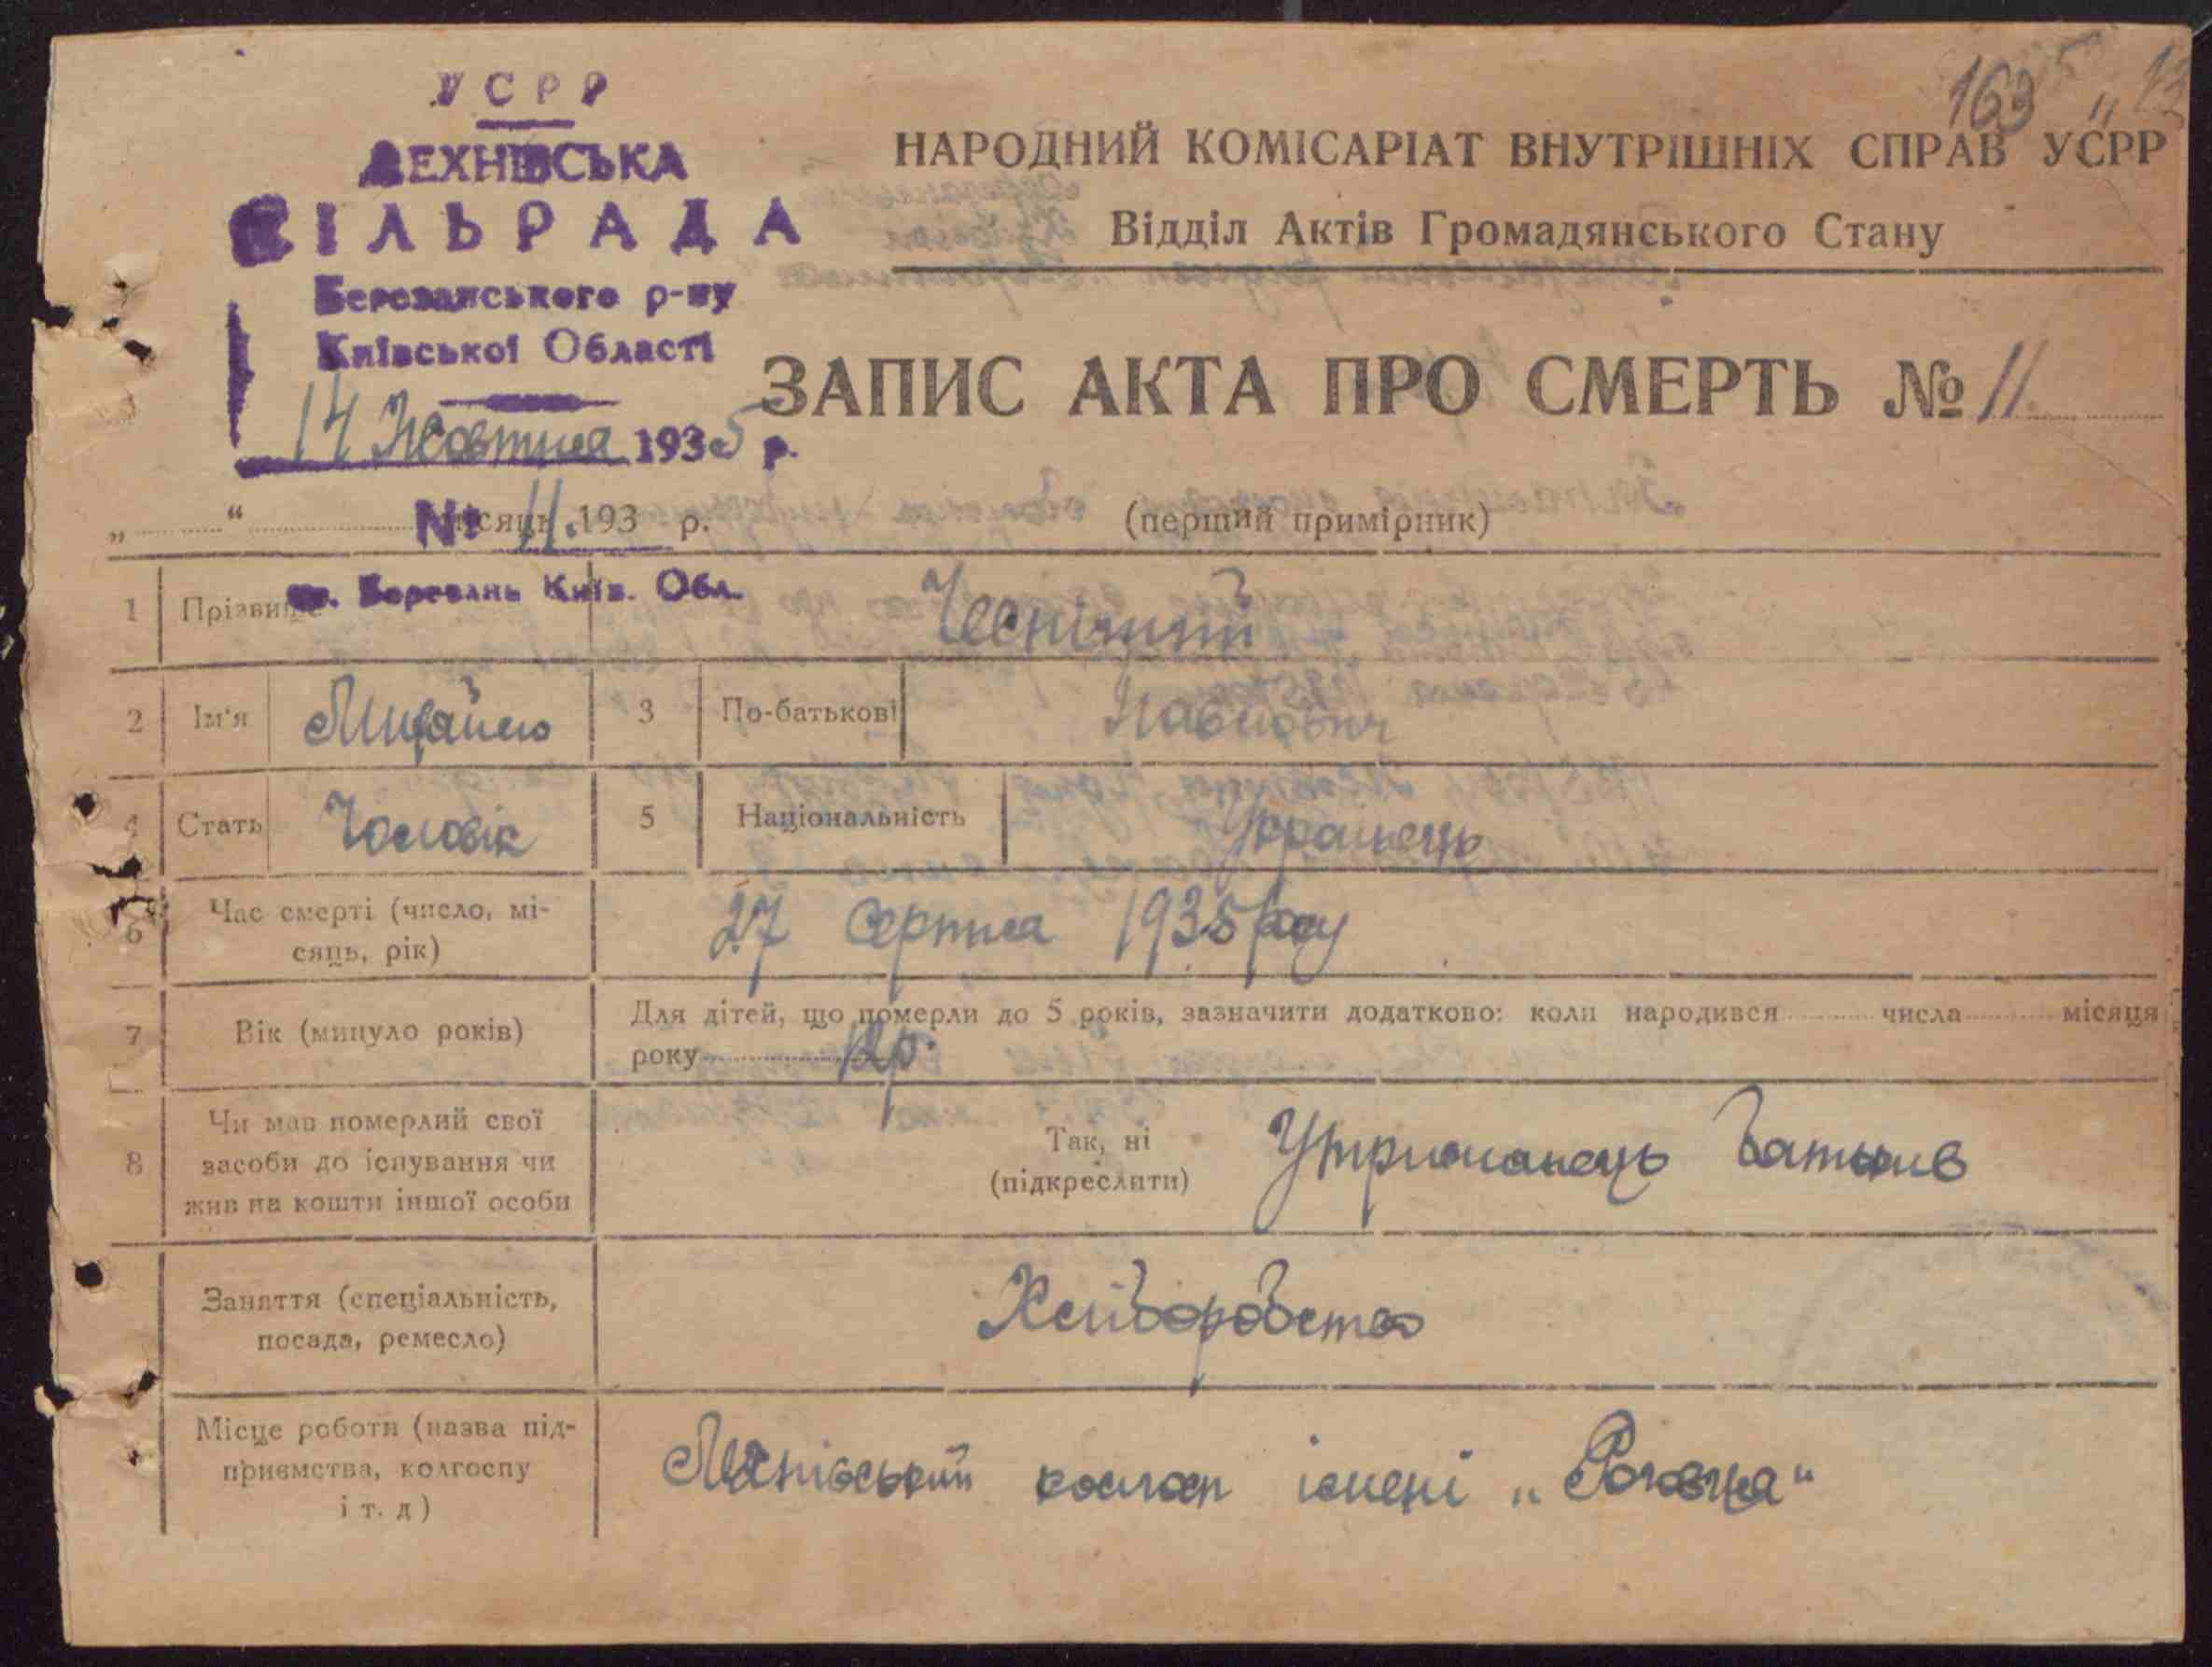 163
УСРР
ЛЕХНІВСЬКА
СІЛЬРАДА
Березанського р-ну
Київської Області
14 Жовтня 1935 р.
№ 11.
ст. Березань Київ. Обл.
НАРОДНИЙ КОМІСАРІАТ ВНУТРІШНІХ СПРАВ УСРР
Відділ Актів Громадянського Стану
ЗАПИС АКТА ПРО СМЕРТЬ № 11
„ “ місяць 193 р.
(перший примірник)
1 Прізвище
2 Ім'я Михайло 3 По-батькові Павлович
4 Стать Чоловік 5 Національність Українець
6 Час смерті (число, мі-
сяць, рік) 27 Серпня 1935 року
7 Вік (минуло років) Для дітей, що померли до 5 років, зазначити додатково: коли народився числа місяця
року 12р.
8 Чи мав померлий свої
засоби до існування чи
жив на кошти іншої особи
Так, ні
(підкреслити) Утриманець Батьків
Заняття (спеціальність,
посада, ремесло) Хліборобство
Місце роботи (назва під-
приємства, колгоспу
і т. д) колгосп імені